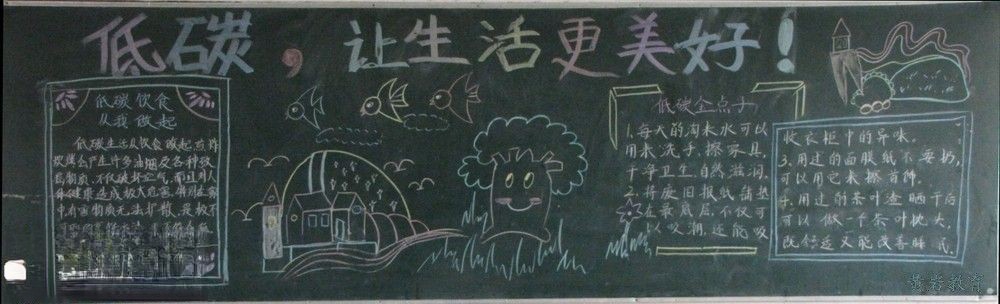 低碳，让生活更美好！
低碳饮食
从我做起
低碳生活从饮食做起
炊烟会产生许多油烟及各种
物质，不仅破坏空气，而且对人
健康造成极大危害，
中有害物质无法扩散，是
低碳金点子
1、每天的淘米水可以
用来洗手，擦家具，
干净卫生，自然滋润。
2、将废旧报纸铺垫
在最底层，不仅可
以吸潮，还能吸
收衣柜中的异味。
3、用过的面膜纸不要扔，
可以用它来擦首饰。
4、用过的茶叶渣晒干后
可以做一个茶叶枕头，
既舒适又能改善睡眠。
黄岩教育